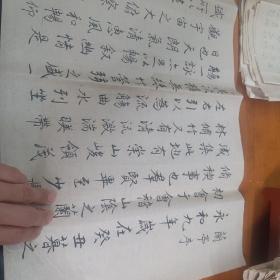 蘭亭序
永和九年歲在癸丑暮之
初會于會稽山陰之蘭
脩稧事也羣賢畢至少
咸集此地有崇山峻領茂
林脩竹又有清流激湍暎帶
左右引以為流觴曲水列坐
絲竹管弦之盛一
觴詠足以暢敘幽情是
日也天朗氣清惠風和暢仰
宇宙之大俯